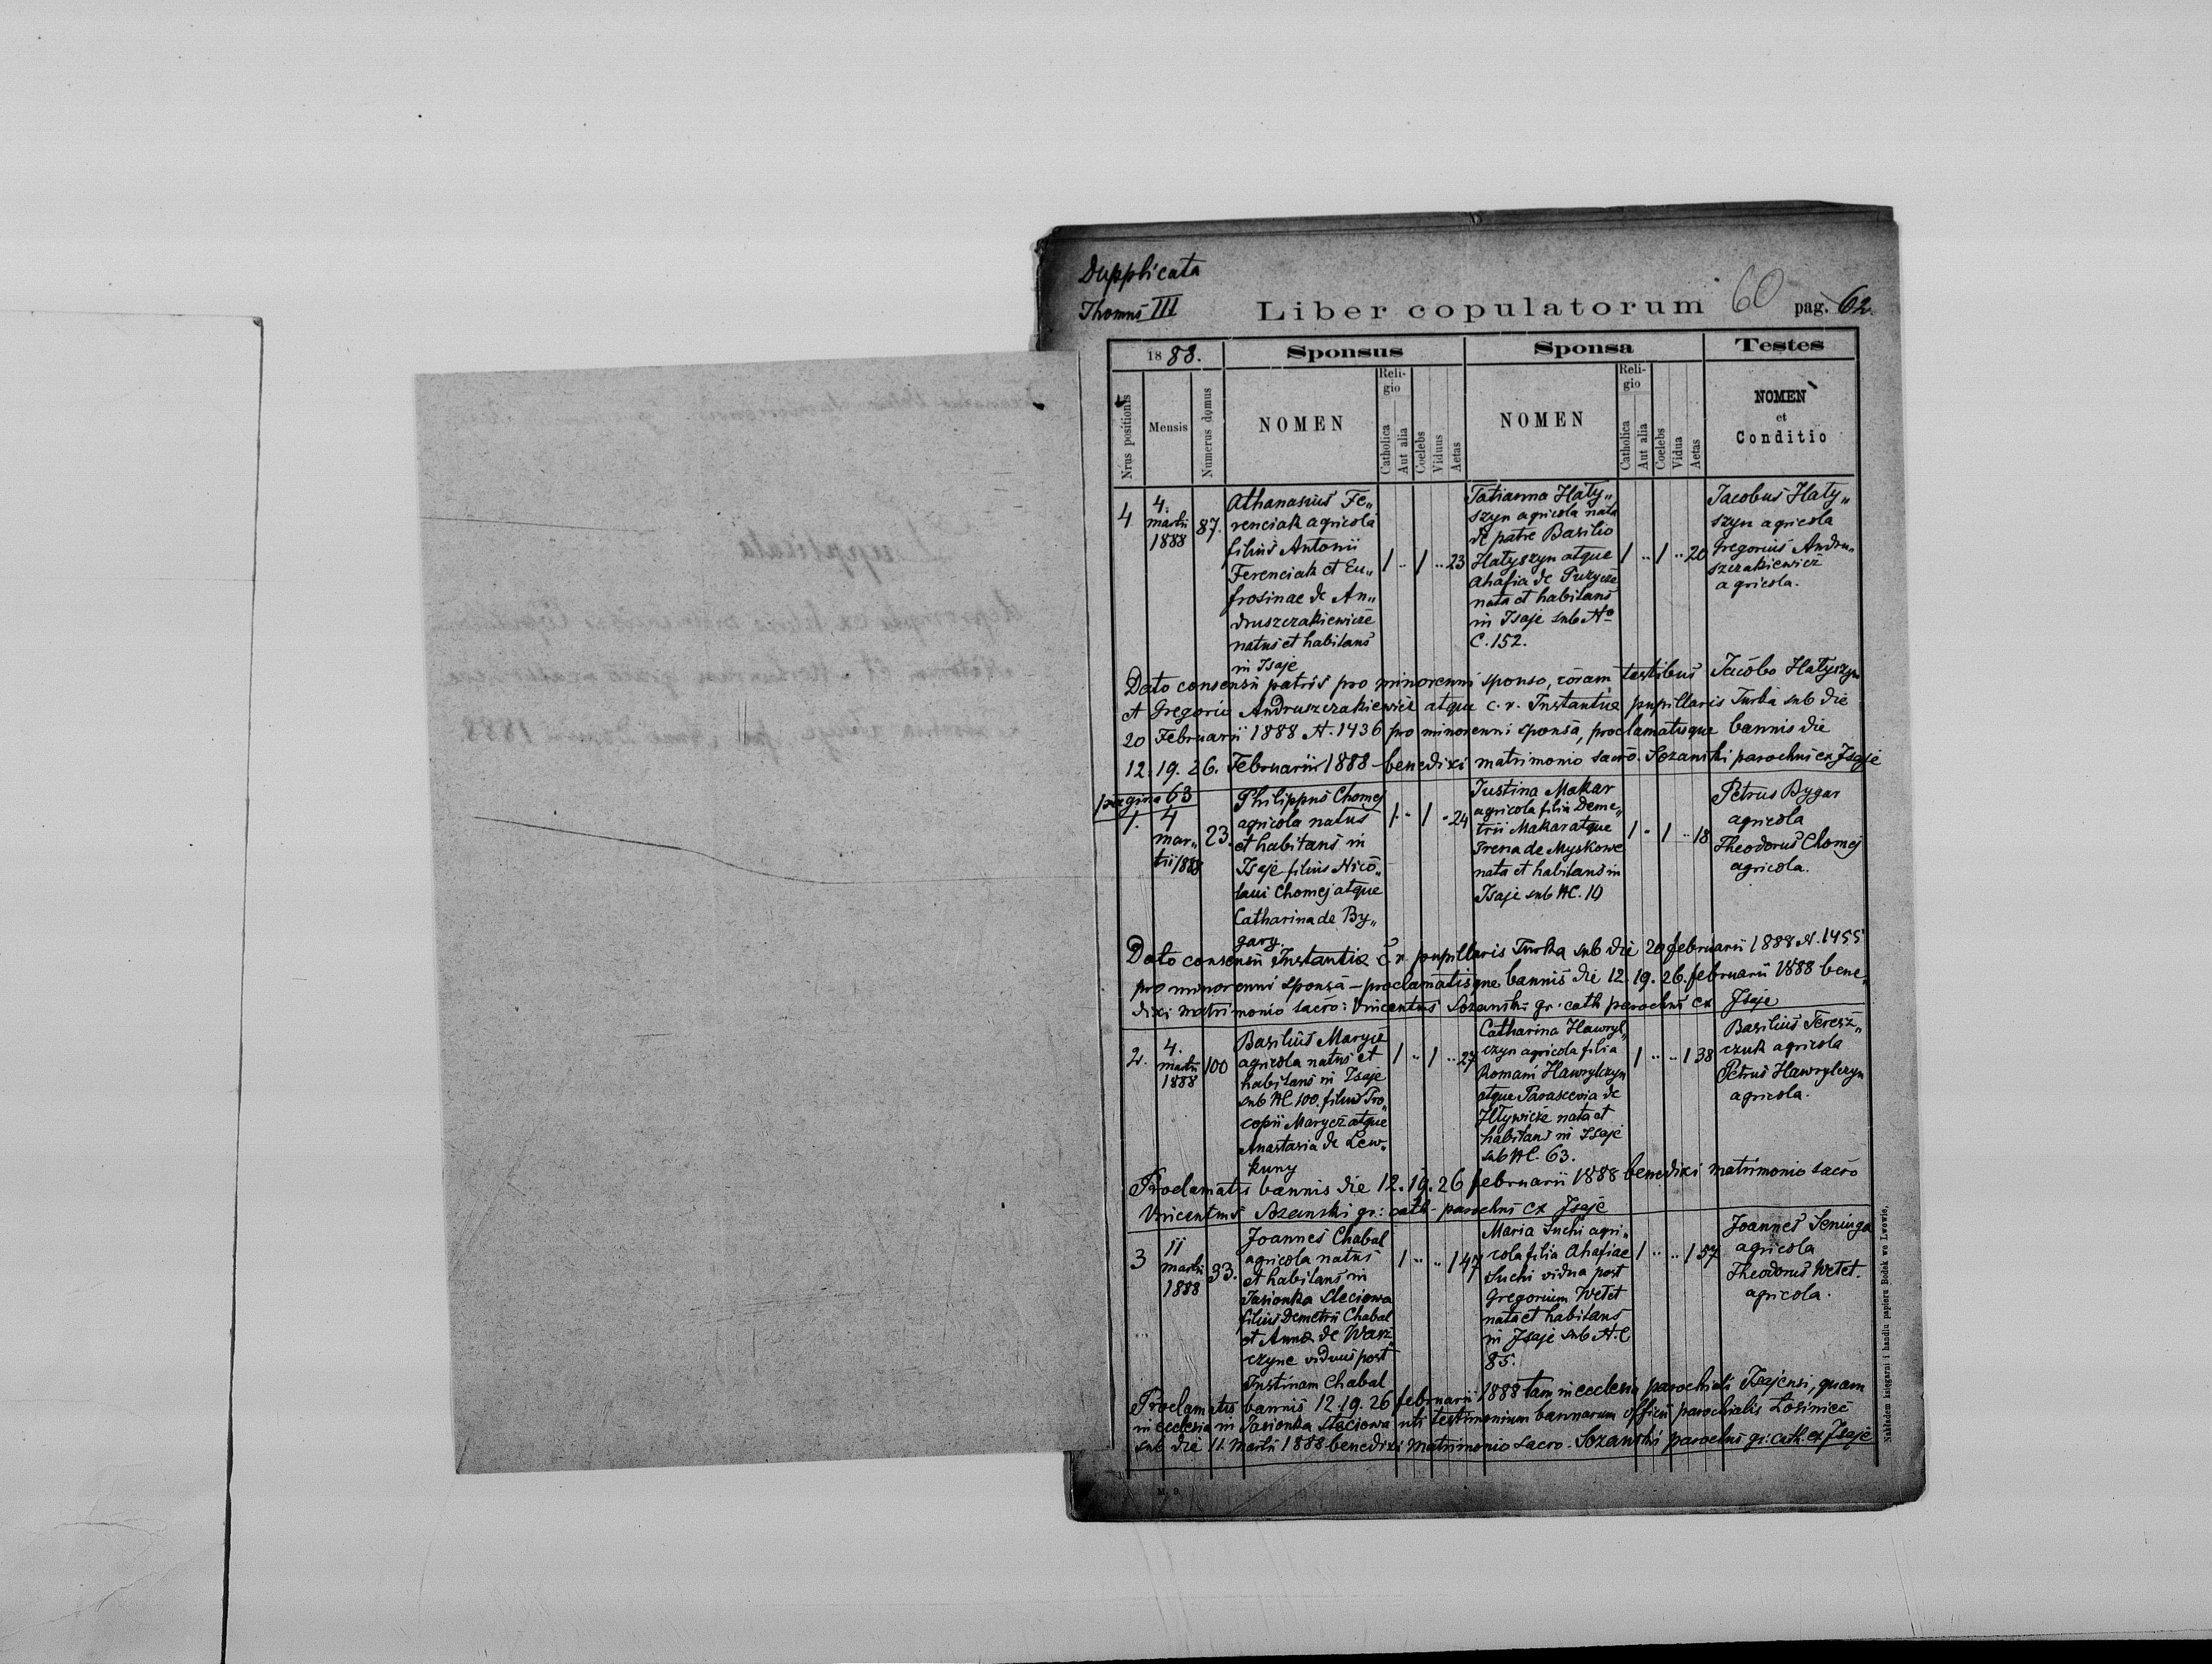 Dupplicata
Thomus III
Liber copulatorum 60 pag. 62.
1888. Sponsus Sponsa Testes
Nrus positionis
Mensis
Numerus domus
NOMEN
Religio
Catholica
Aut alia
Coelebs
Viduus
Aetas
NOMEN
Religio
Catholica
Aut alia
Coelebs
Vidua
Aetas
NOMEN
et
Conditio
4
4.
martii
1888
87.
Athanasius Fe„
renciak agricola
filius Antonii
Ferenciak et Eu„
frosinae de An„
druszczakiewicze
natus et habitans
in Isaje
1 .. 1 .. 23
Tatianna Haty„
szyn agricola nata
de patre Basilio
Hatyszyn atque
Ahafia de Puzycze
nata et habitans
in Isaje sub No
C. 152.
1 .. 1 .. 20
Jacobus Haty„
szyn agricola
Gregorius Andru„
szczakiewicz
agricola.
Dato consensu patris pro minorenni sponso, coram testibus Jacobo Hatyszyn
et Gregorio Andruszczakiewicz atque c. r. Instantiae pupillaris Turka sub die
20 Februarii 1888 N. 1436 pro minorenni sponsa, proclamatisque bannis die
12. 19. 26. Februarii 1888 benedixi matrimonio sacro. Sozanski parochus ex Isaje
pagina 63
1.
4
mar„
tii 1888
23.
Philippus Chomej
agricola natus
et habitans in
Isaje filius Nico„
laui Chomej atque
Catharina de By„
gary.
1 .. 1 .. 24
Justina Makar
agricola filia Deme„
trii Makar atque
Irena de Myskowe
nata et habitans in
Isaje sub NC. 10
1 .. 1 .. 18
Petrus Bygar
agricola
Theodorus Chomej
agricola.
Dato consensu Instantia c. r. pupillaris Turka sub die 20 februarii 1888 N. 1455
pro minorenni sponsa – proclamatisque bannis die 12. 19. 26. februarii 1888 bene„
dixi matrimonio sacro: Vincentius Sozanski gr. cath parochus ex Isaje
2.
4.
martii
1888
100
Basilius Marycz
agricola natus et
habitans in Isaje
sub NC. 100. filius Pro„
copii Marycz atque
Anastasia de Lew„
kuny
1 .. 1 .. 27
Catharina Hawryl„
czyn agricola filia
Romani Hawrylczyn
atque Parascevia de
Hlywicze nata et
habitans in Isaje
sub NC. 63.
1 .. .. 1 38
Basilius Teresz„
czuk agricola
Petrus Hawrylczyn
agricola.
Proclamatis bannis die 12. 19. 26 februarii 1888 benedixi matrimonio sacro
Vincentius Sozanski gr: cath - parochus ex Isaje
3
11
martii
1888
33.
Joannes Chabal
agricola natus
et habitans in
Jasionka Steciowa
filius Demetrii Chabal
et Anna de Wasz„
czyne viduus post
Justinam Chabal
1 .. .. 1 47
Maria Suchi agri„
cola filia Ahafiae
Suchi vidua post
Gregorium Wetet
nata et habitans
in Isaje sub N. C
85.
1 .. .. 1 57
Joannes Seniuga
agricola
Theodorus Wetet.
agricola.
Proclamatis bannis 12. 19. 26 februarii 1888 tam in ecclesia parochiali Isajensi, quam
in ecclesia in Jasionka Steciowa uti testimonium bannarum officii parochialis Łosiniec
sub die 11. Martii 1888 benedixi matrimonio sacro - Sozanski parochus gr: cath. ex Isaje
Nakładem księgarni i handlu papieru Bodek we Lwowie.
M. 9.
Dupplicata